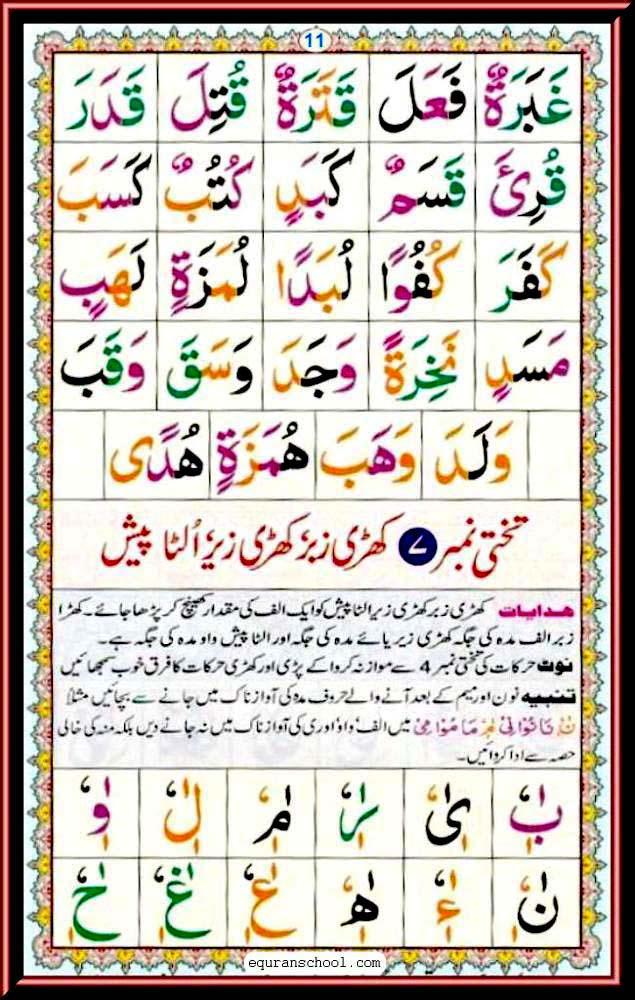 11
غَبَرَةٌ فَعَلَ قَتَرَةٌ قُتِلَ قَدَرَ
قُرِئَ قَسَمٌ كَبَدٍ كُتُبٌ كَسَبَ
كَفَرَ كُفُوًا لُبَدًا لُمَزَةٍ لَهَبٍ
مَسَدٍ نَخِرَةً وَجَدَ وَسَقَ وَقَبَ
وَلَدَ وَهَبَ هُمَزَةٍ هُدًى
تختی نمبر ۷ کھڑی زبر کھڑی زیر اُلٹا پیش
ھدایات کھڑی زبر کھڑی زیر الٹا پیش کو ایک الف کی مقدار کھینچ کر پڑھا جائے۔ کھڑا
زبر الف مدہ کی جگہ کھڑی زیر یائے مدہ کی جگہ اور الٹا پیش واو مدہ کی جگہ ہے۔
نوٹ حرکات کی تختی نمبر 4 سے موازنہ کروا کے پڑی اور کھڑی حرکات کا فرق خوب سمجھائیں
تنبیہ نون اور میم کے بعد آنے والے حروف مدہ کی آواز ناک میں جانے سے بچائیں مثلاً
نَا نُوْا نِیْ مَا مُوْا مِیْ میں الف واؤ اور ی کی آواز ناک میں نہ جانے دیں بلکہ منہ کی خالی
حصہ سے ادا کروائیں۔
بٰ یٰ رٰ مٰ لٰ وٰ
نٰ ءٰ هٰ عٰ غٰ حٰ
equranschool.com